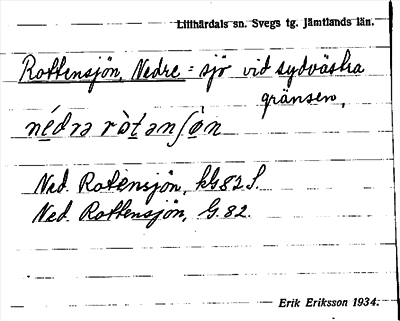 Lillhärdals sn. Svegs tg. Jämtlands län.
Rottensjön, Nedre = sjö vid sydvästra
gränsen,
nédrə ròtənʃö̀n
Ned. Rotensjön, kG82S.
Ned. Rottensjön, G.82.
Erik Eriksson 1934.